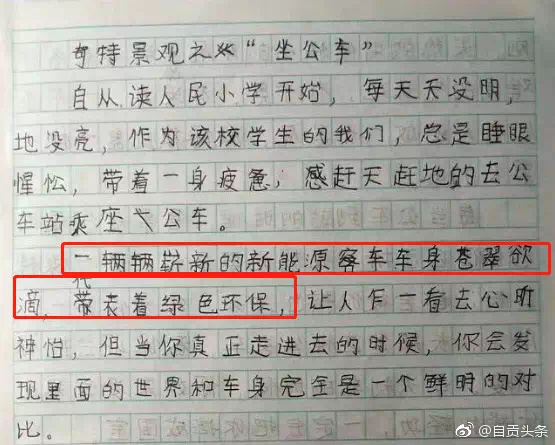 奇特景观之“坐公车”
自从读人民小学开始，每天天没明，
地没亮，作为该校学生的我们，总是睡眼
惺忪，带着一身疲惫，感赶天赶地的去公
车站乘座公车。
一辆辆崭新的新能源客车车身苍翠欲
滴，代表着绿色环保，让人乍一看去心旷
神怡，但当你真正走进去的时候，你会发
现里面的世界和车身完全是一个鲜明的对
比。
@自贡头条